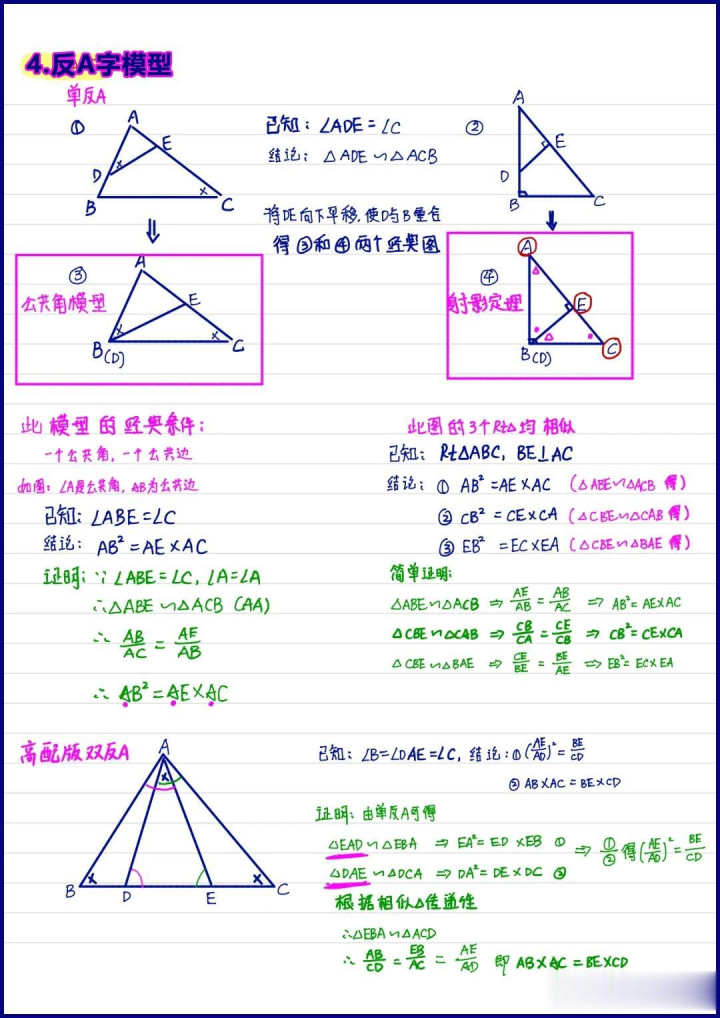 4.反A字模型
单反A
① A E D B C ×  ×
已知：∠ADE=∠C
结论：△ADE∽△ACB
② A E D B C
将DE向下平移，使D与B重合
得③和④两个经典图
③ A E B(D) C × ×
公共角模型
④ A E B(D) C
射影定理
此模型的经典条件：
一个公共角，一个公共边
如图：∠A是公共角，AB为公共边
已知：∠ABE=∠C
结论：AB²=AE×AC
证明：∵∠ABE=∠C，∠A=∠A
∴△ABE∽△ACB (AA)
∴ AB/AC = AE/AB
∴ AB²=AE×AC
此图的3个Rt△均相似
已知：Rt△ABC，BE⊥AC
结论：① AB²=AE×AC（△ABE∽△ACB 得）
② CB²=CE×CA（△CBE∽△CAB 得）
③ EB²=EC×EA（△CBE∽△BAE 得）
简单证明：
△ABE∽△ACB ⇒ AE/AB = AB/AC ⇒ AB²=AE×AC
△CBE∽△CAB ⇒ CB/CA = CE/CB ⇒ CB²=CE×CA
△CBE∽△BAE ⇒ CE/BE = BE/AE ⇒ EB²=EC×EA
高配版双反A
A B D E C × × ×
已知：∠B=∠DAE=∠C，结论：①(AE/AD)²=BE/CD
② AB×AC=BE×CD
证明：由单反A可得
△EAD∽△EBA ⇒ EA²=ED×EB ① ⇒ ①/② 得(AE/AD)²=BE/CD
△DAE∽△DCA ⇒ DA²=DE×DC ②
根据相似△传递性
∴△EBA∽△ACD
∴ AB/CD = EB/AC = AE/AD 即 AB×AC=BE×CD